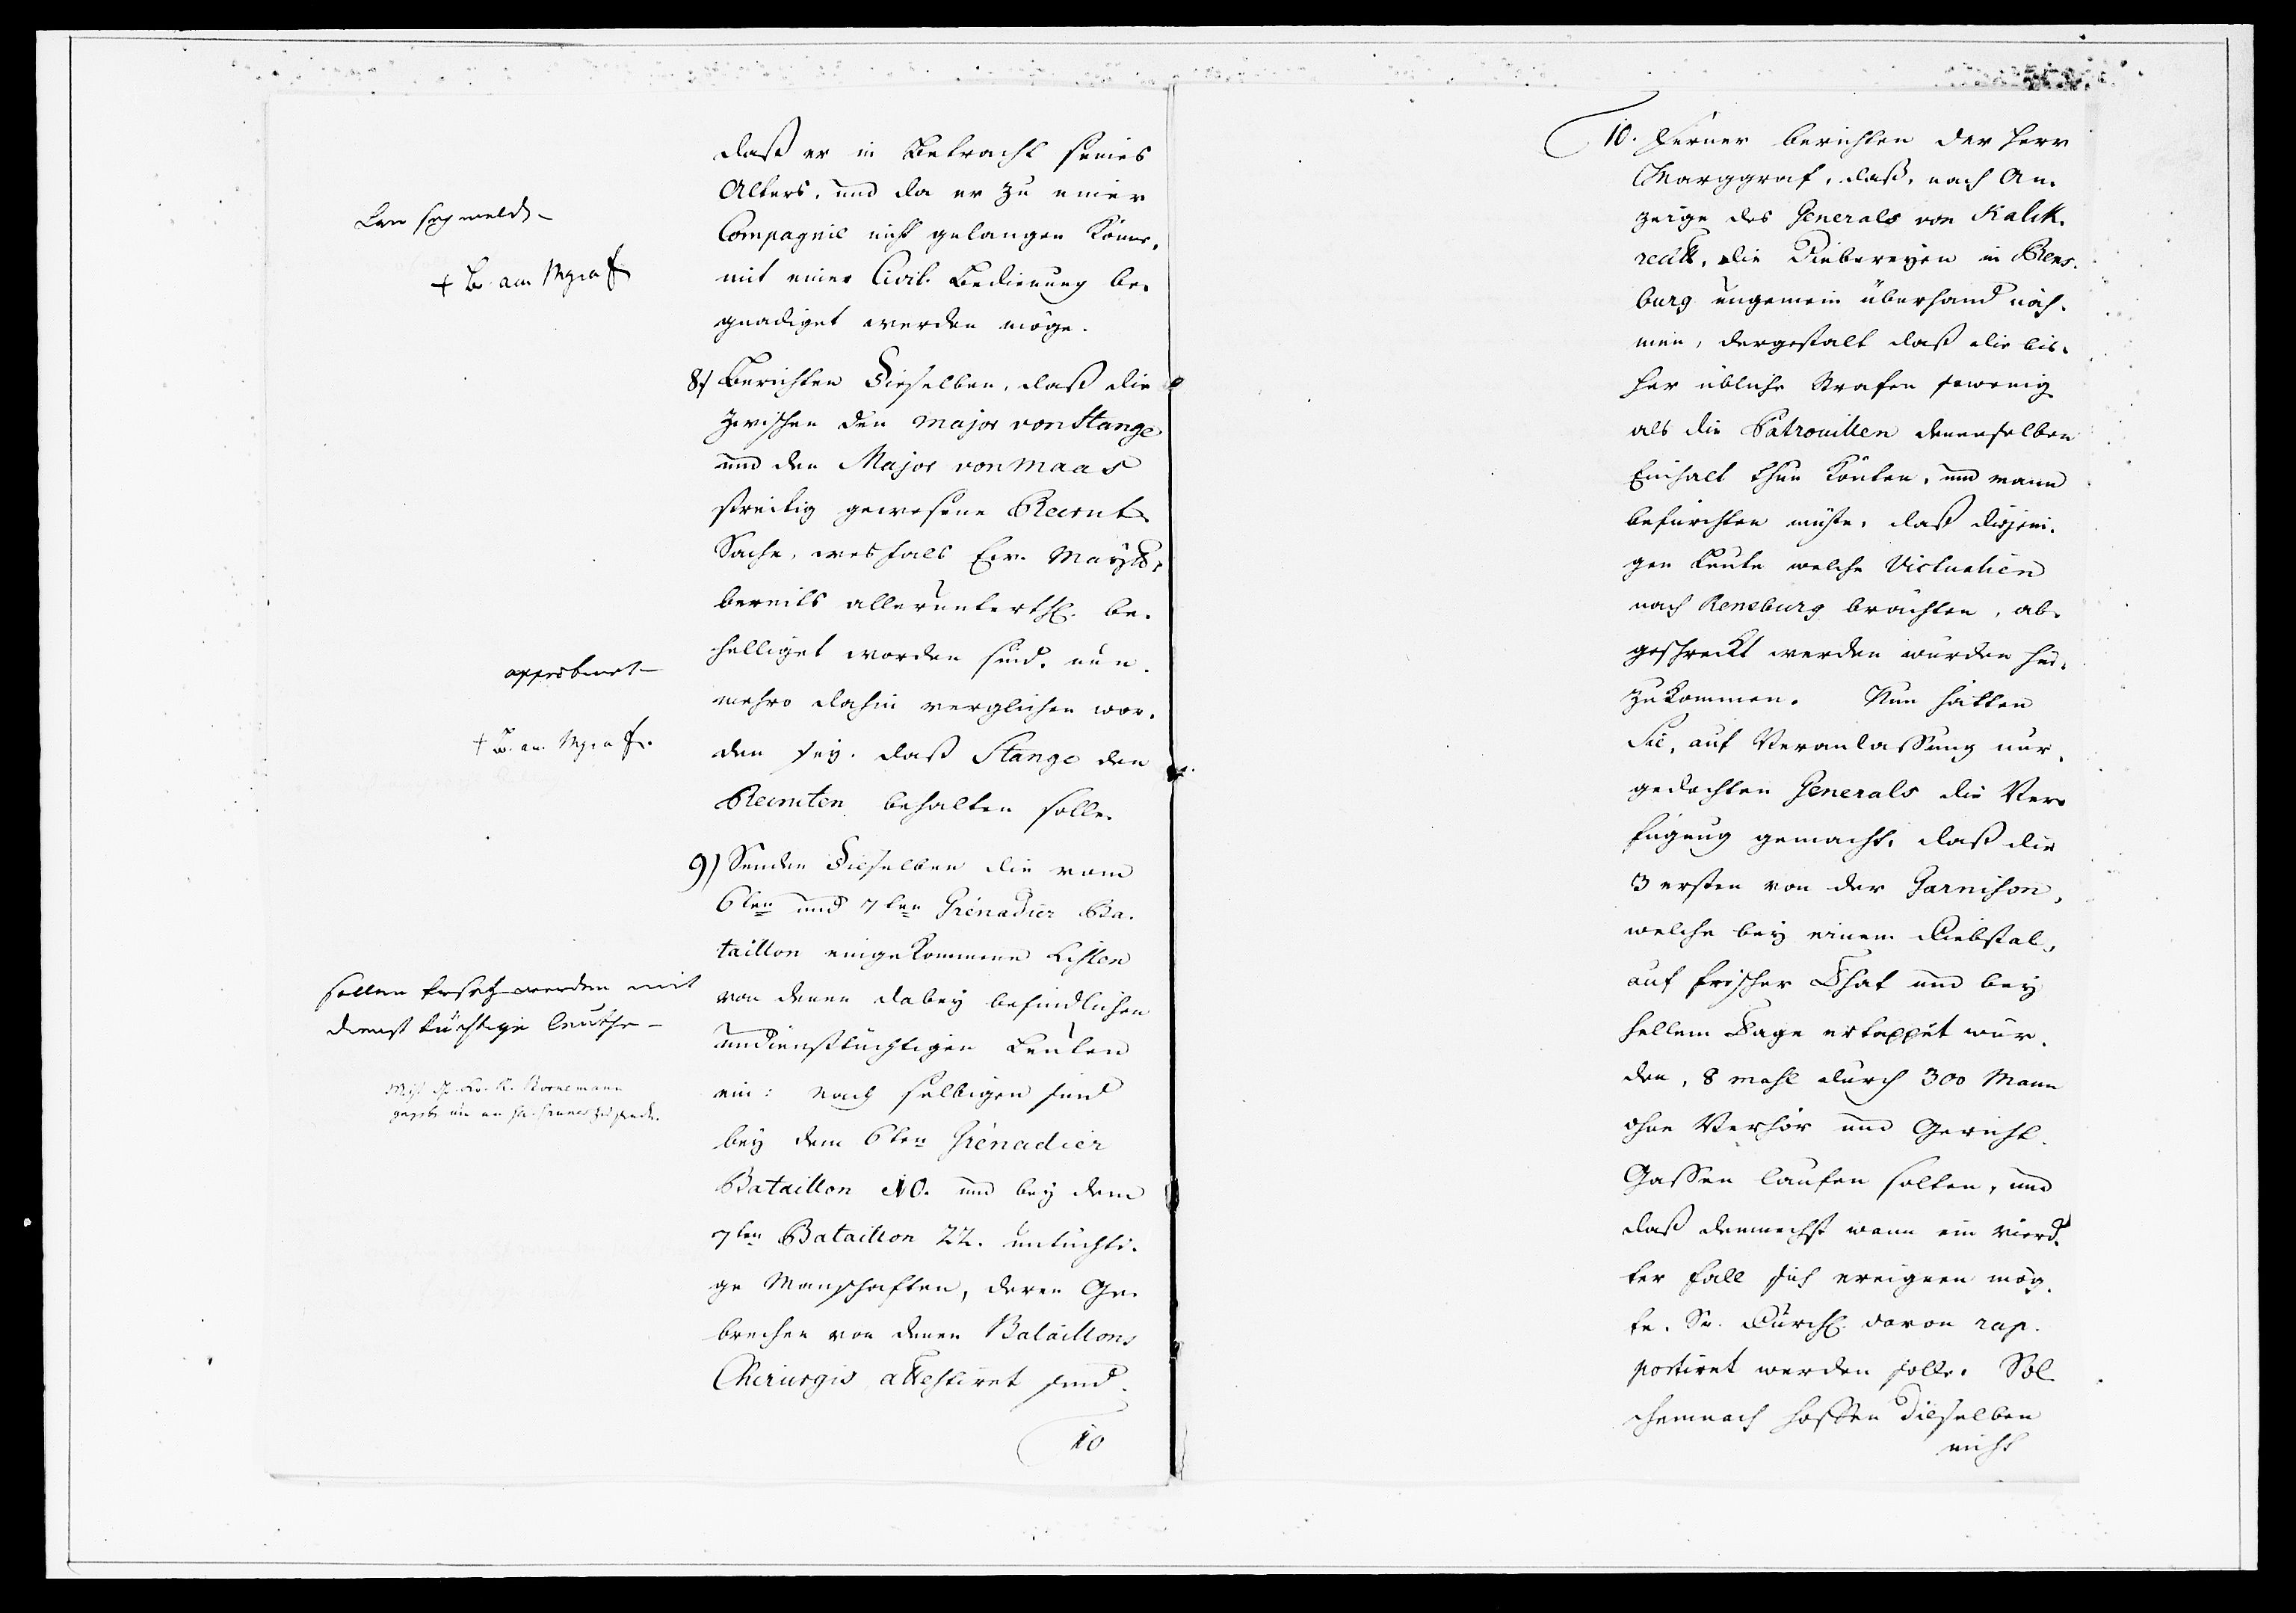 daß er in Betracht seines
Alters, und da er zu einer
Compagnie nicht gelangen könne,
mit einer Civil-Bedienung be-
gnadiget werden möge.
8) Berichten Dieselben, daß die
zwischen den Major von Stange
und den Major von Maas
streitig gewesene Recrut-
Sache, weshalb Ew. Mayst.
bereits allerunterth. be-
helliget worden sind, nun-
mehro dahin verglichen wor-
den sey, daß Stange den
Recruten behalten solle.
9) Senden Dieselben die vom
6ten und 7ten Grénadier Ba-
taillon eingekommene Listen
von denen dabey befindlichen
undiensttüchtigen Leuten
ein: Nach selbigen sind
bey dem 6ten Grénadier
Bataillon 10. und bey dem
7ten Bataillon 22. untüchti-
ge Manschaften, deren Ge-
brechen von denen Bataillons
Chirurgis attestiret sind.
10
+ B. an Mgraf
approbiret
+ B. an Mgraf.
sollen ersetz werden mit
dienst tüchtige leuthe
10. Ferner berichten der Herr
Marggraf, daß, nach An-
zeige des Generals von Kalck-
reuth, die Diebereyen in Rens-
burg ungemein überhand näh-
men, dergestalt daß die bis-
her übliche Strafen sowenig
als die Patrouillen denenselben
Einhalt thun könten, und mann
befürchten müste, daß diejeni-
gen Leute welche Victualien
nach Rensburg brächten, ab-
geschreckt werden würden hin-
zukommen. Nun hätten
Sie, auf Veranlaßung nur-
gedachten Generals die Ver-
fügung gemacht, daß die
3 ersten von der Garnison,
welche bey einem Diebstal,
auf frischer That und bey
hellem Tage ertappet wür-
den, 8 mahl durch 300 Mann
ohne Verhör und Gericht
Gassen laufen solten, und
daß demnechst wann ein vierd-
ter Fall sich ereignen mög-
te, Sr. Durchl. davon rap-
portiret werden solle. Sol-
chemnach hoffen Dieselben
nicht